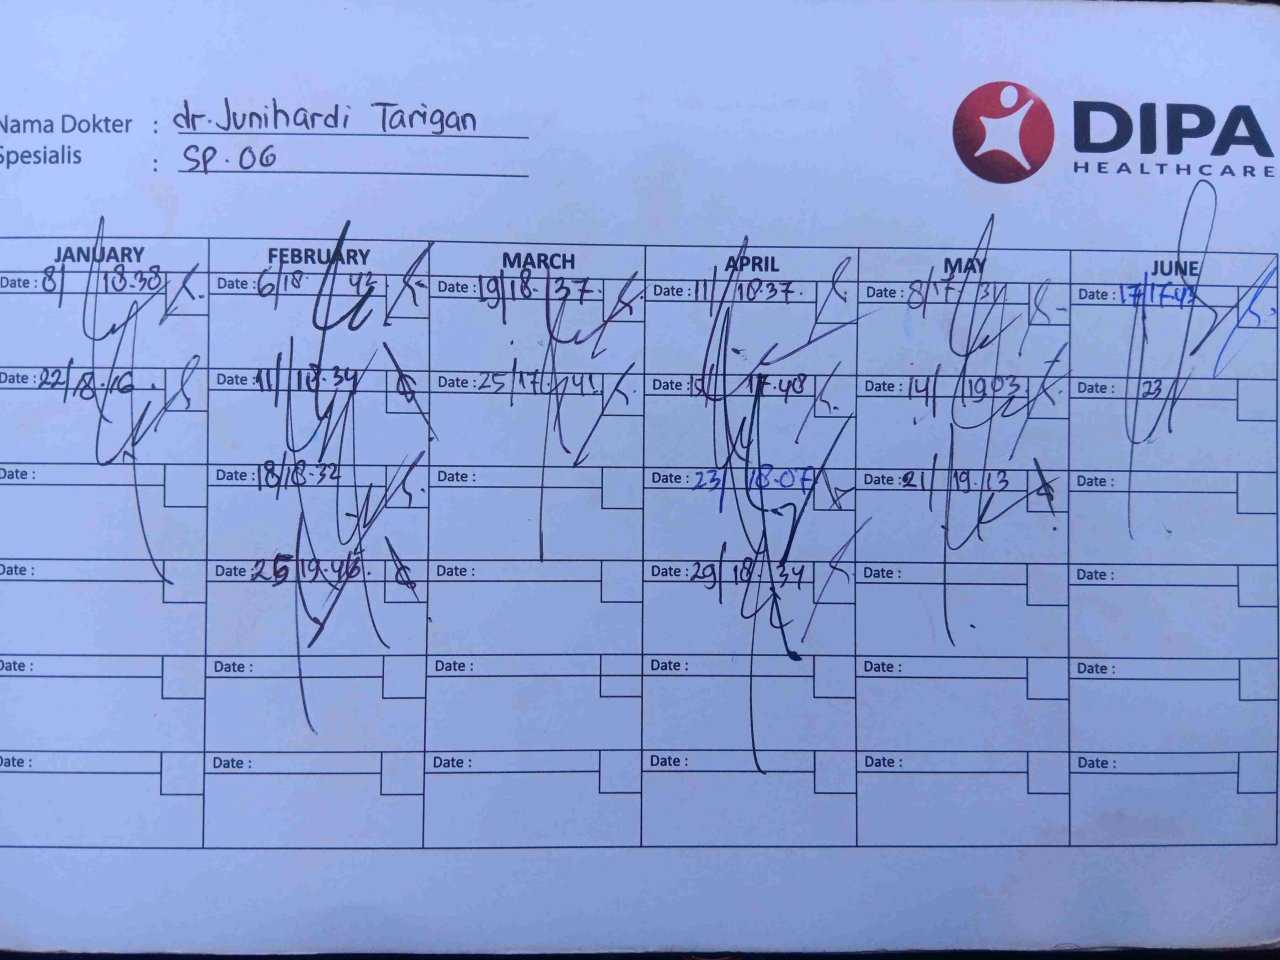 Nama Dokter : dr. Junihardi Tarigan
Spesialis : SP. OG
DIPA
HEALTHCARE
JANUARY FEBRUARY MARCH APRIL MAY JUNE
Date : 8/ 18.38 Date : 6/18. 42 Date : 19/18.37. Date : 11/ 18.37. Date : 8/17 Date : 17/17.43
Date : 22/18.16. Date : 11/ 18.34 Date : 25/17.41 Date : 17.48 Date : 14/ 19.03 Date : 23
Date : Date : 18/18.32 Date : Date : 23/ 18.07 Date : 21/ 19.13 Date :
Date : Date : 25 19.46. Date : Date : 29/ 18.34 Date : Date :
Date : Date : Date : Date : Date : Date :
Date : Date : Date : Date : Date : Date :